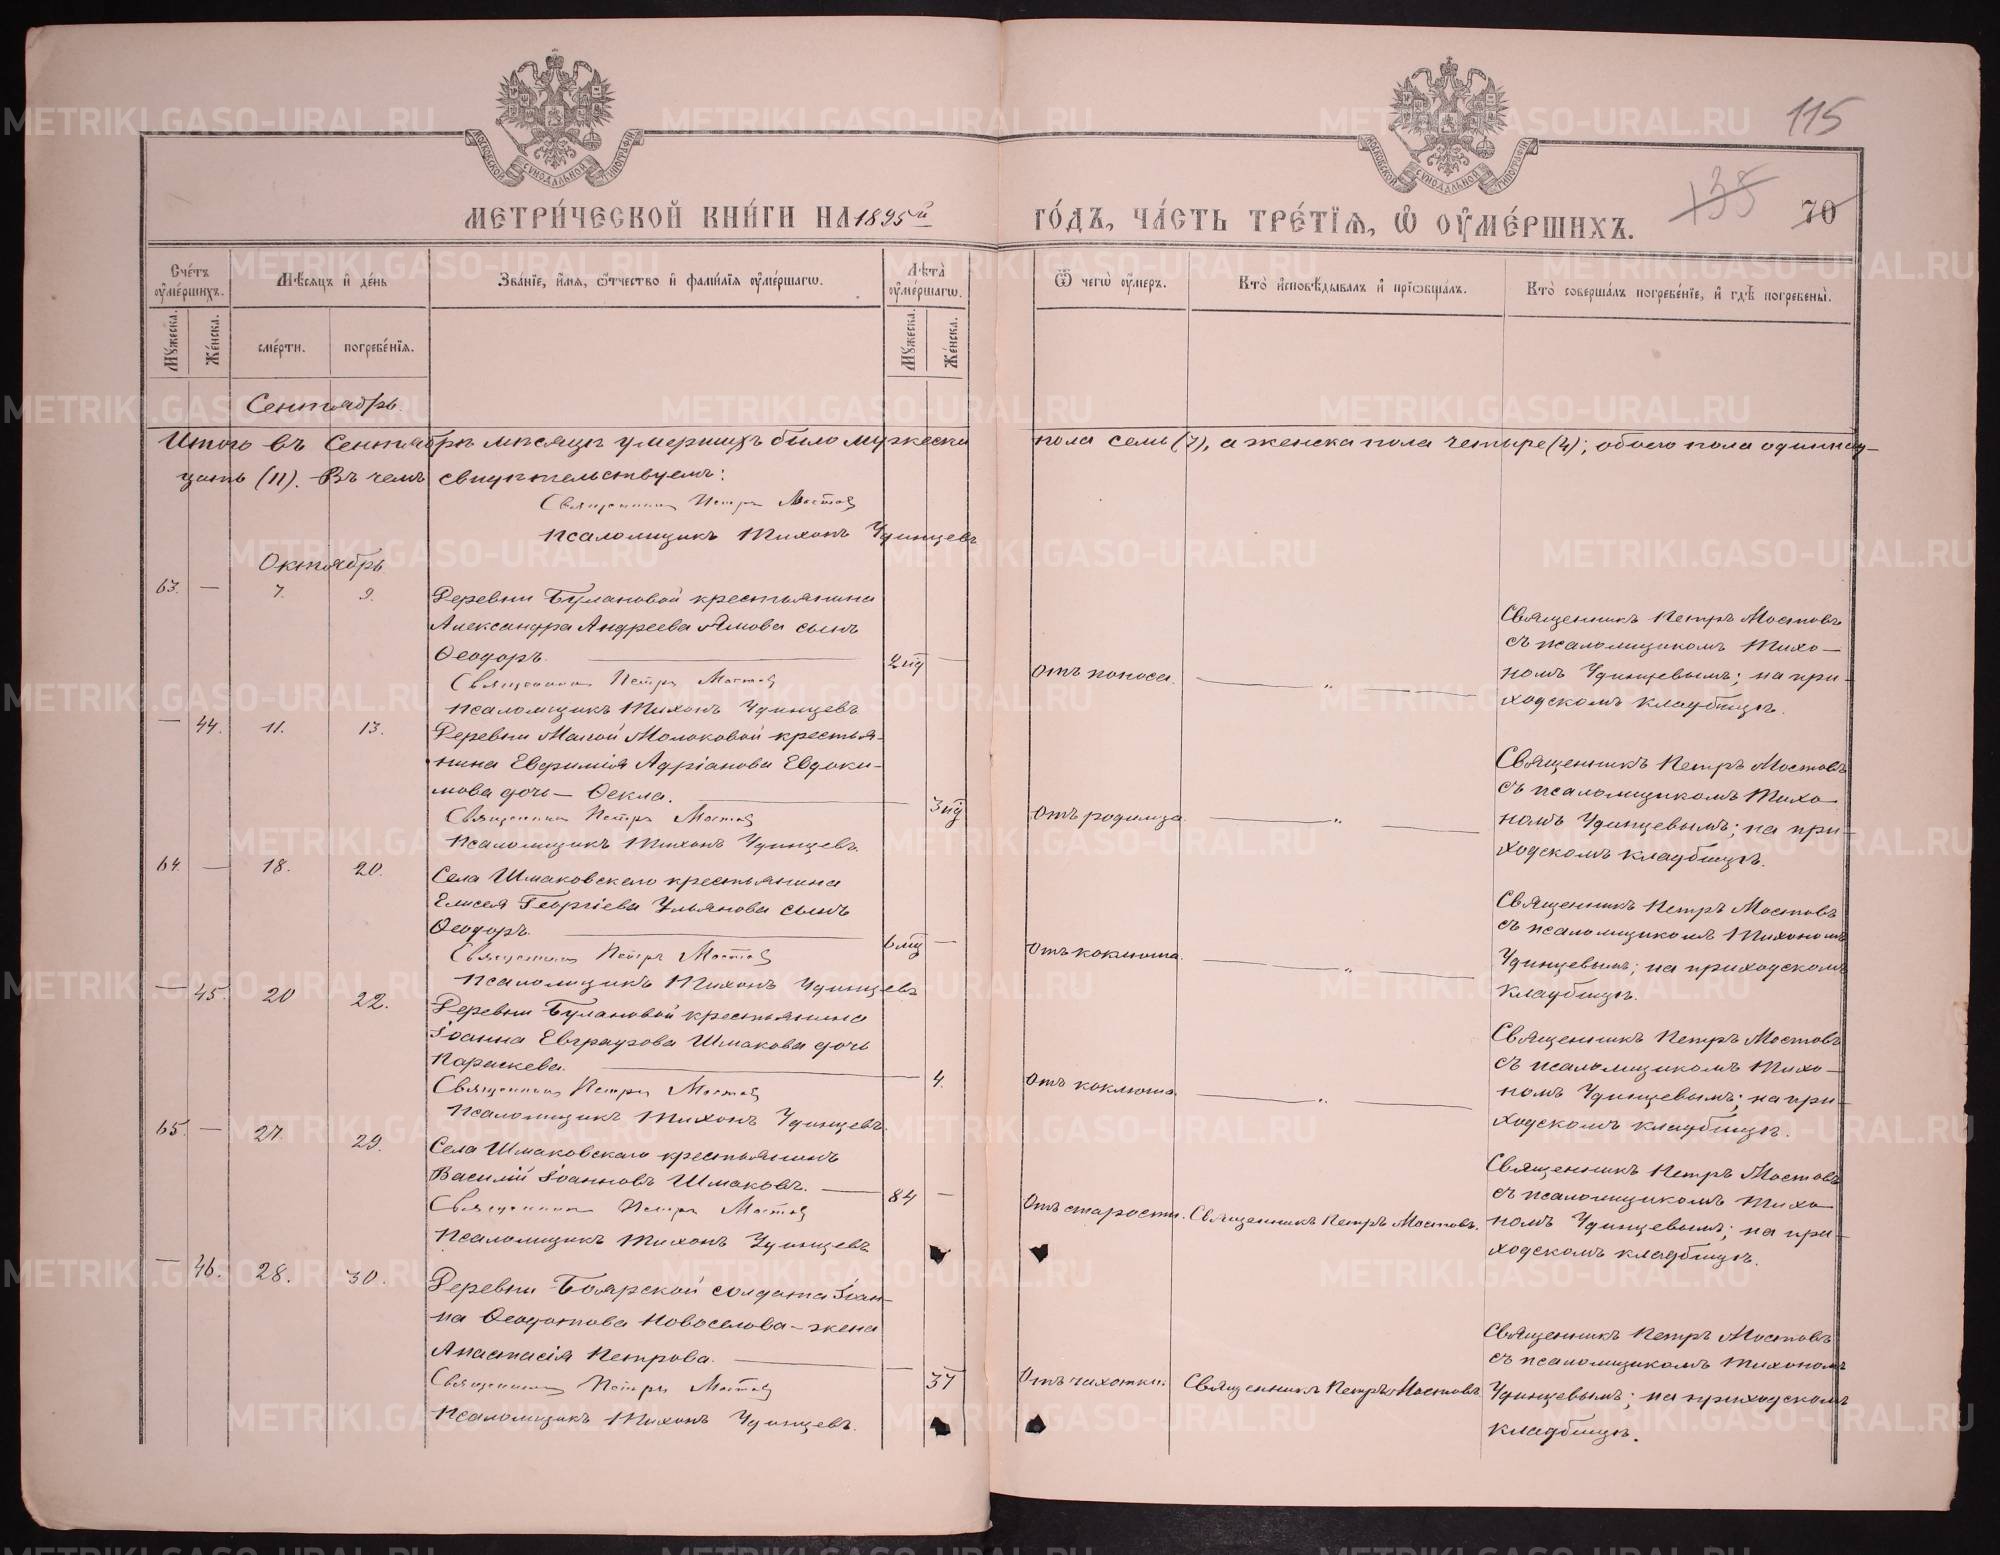 115
135
70
МЕТРИ́ЧЕСКОЙ КНИ́ГИ НА 1895й ГО́ДЪ, ЧА́СТЬ ТРЕ́ТЇѦ, Ѡ ОУ҆МЕ́РШИХЪ.
Сче́тъ оу҆ме́ршихъ.
Мꙋ́жеска.
Же́нска.
Мѣ́сяцъ и де́нь
сме́рти.
погребе́нїѧ.
Зва́нїе, и҆́мѧ, ѻ҆́тчество и҆ фами́лїѧ оу҆ме́ршагѡ.
Лѣта̀ оу҆ме́ршагѡ.
Мꙋ́жеска.
Же́нска.
Ѿ чегѡ̀ оу҆́меръ.
Кто̀ и҆сповѣ́дывалъ и҆ прїѡбща́лъ.
Кто̀ соверша́лъ погребе́нїе, и҆ гдѣ̀ погребены̀.
Сентябрь.
Итого въ Сентябрѣ мѣсяцѣ умершихъ было мужеска пола семь (7), а женска пола четыре (4); обоего пола одиннад-
цать (11). Въ чемъ свидѣтельствуемъ:
Священникъ Петръ Мостовъ
Псаломщикъ Тихонъ Удинцевъ
Октябрь
63. — 7. 9. Деревни Булановой крестьянина
Александра Андреева Ямова сынъ
Ѳеодоръ. 2 нд — Отъ поноса. — „ —
Священникъ Петръ Мостовъ
Псаломщикъ Тихонъ Удинцевъ
Священникъ Петръ Мостовъ
съ псаломщикомъ Тихо-
номъ Удинцевымъ; на при-
ходскомъ кладбищѣ.
— 44. 11. 13. Деревни Малой Молоковой крестья-
нина Евфимія Адріанова Евдоки-
мова дочь — Ѳекла. 3 нд Отъ родимца. — „ —
Священникъ Петръ Мостовъ
Псаломщикъ Тихонъ Удинцевъ.
Священникъ Петръ Мостовъ
съ псаломщикомъ Тихо-
номъ Удинцевымъ; на при-
ходскомъ кладбищѣ.
64. — 18. 20. Села Шмаковскаго крестьянина
Елисея Георгіева Ульянова сынъ
Ѳеодоръ. 6 мц — Отъ коклюша. — „ —
Священникъ Петръ Мостовъ
Псаломщикъ Тихонъ Удинцевъ
Священникъ Петръ Мостовъ
съ псаломщикомъ Тихономъ
Удинцевымъ; на приходскомъ
кладбищѣ.
— 45. 20 22. Деревни Булановой крестьянина
Іоанна Евграфова Шмакова дочь
Параскева. 4. Отъ коклюша. — „ —
Священникъ Петръ Мостовъ
Псаломщикъ Тихонъ Удинцевъ.
Священникъ Петръ Мостовъ
съ псаломщикомъ Тихо-
номъ Удинцевымъ; на при-
ходскомъ кладбищѣ.
65. — 27. 29. Села Шмаковскаго крестьянинъ
Василій Іоанновъ Шмаковъ. 84 — Отъ старости. Священникъ Петръ Мостовъ.
Священникъ Петръ Мостовъ
Псаломщикъ Тихонъ Удинцевъ
Священникъ Петръ Мостовъ
съ псаломщикомъ Тихо-
номъ Удинцевымъ; на при-
ходскомъ кладбищѣ.
— 46. 28. 30. Деревни Боярской солдата Іоан-
на Ѳеодотова Новоселова — жена
Анастасія Петрова. 37 Отъ чахотки. Священникъ Петръ Мостовъ
Священникъ Петръ Мостовъ
Псаломщикъ Тихонъ Удинцевъ.
Священникъ Петръ Мостовъ
съ псаломщикомъ Тихономъ
Удинцевымъ; на приходскомъ
кладбищѣ.
METRIKI.GASO-URAL.RU